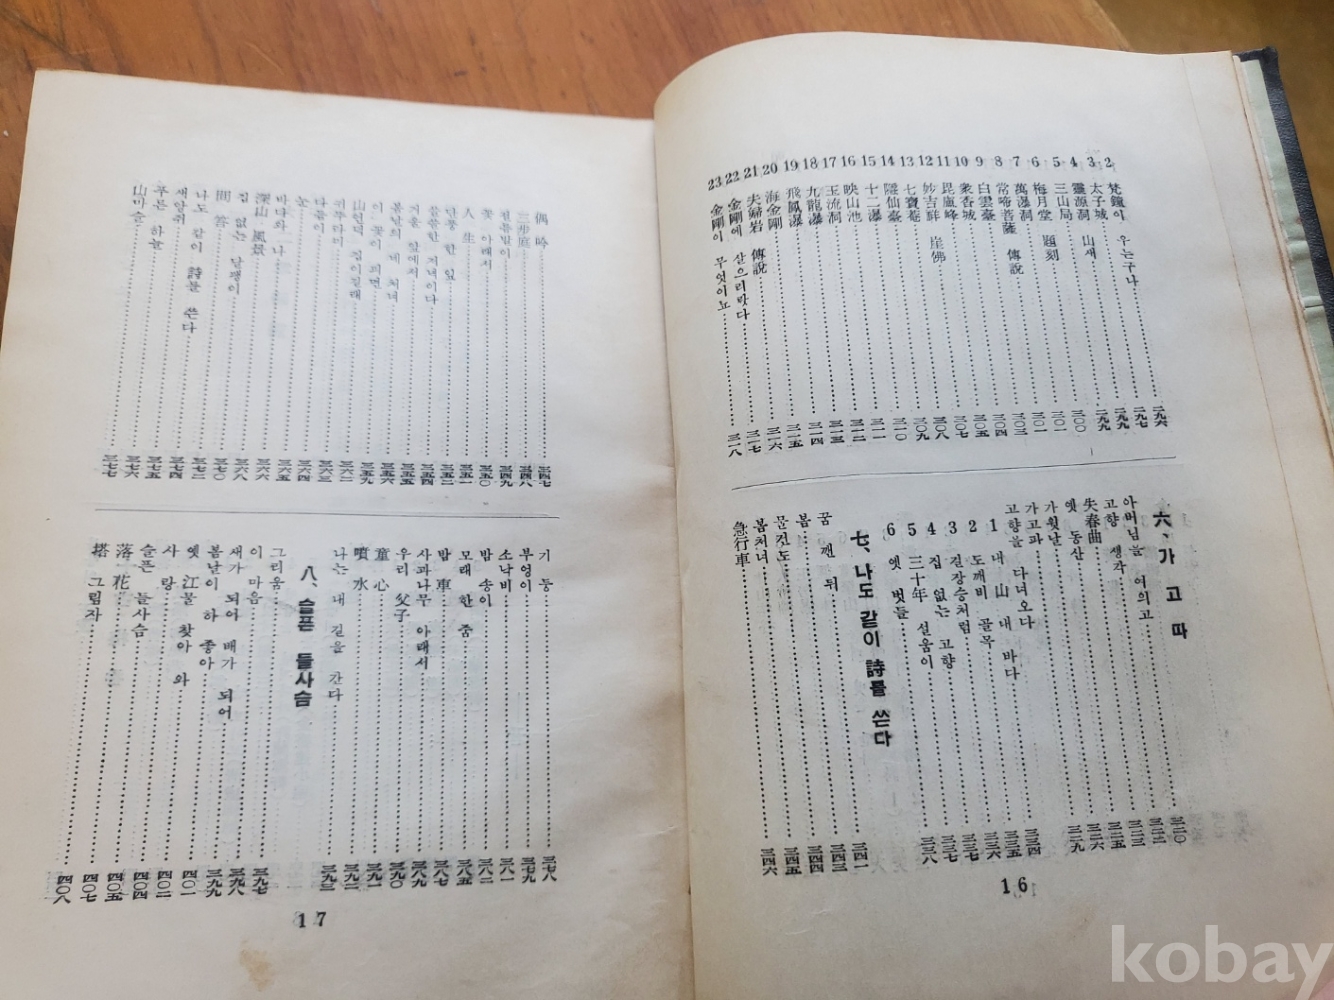 2 梵鐘이 우는구나 二九六
3 太子城 二九七
4 靈源洞 山새 二九九
5 三山局 二九九
6 梅月堂 題刻 三〇〇
7 萬瀑洞 三〇一
8 常啼菩薩 傳說 三〇一
9 白雲臺 三〇三
10 衆香城 三〇四
11 毘盧峰 三〇五
12 妙吉祥 崖佛 三〇七
13 七寶菴 三〇八
14 隱仙臺 三〇九
15 十二瀑 三一〇
16 映山池 三一一
17 玉流洞 三一二
18 九龍瀑 三一三
19 飛鳳瀑 三一四
20 海金剛 三一五
21 夫婦岩 傳說 三一六
22 金剛에 살으리랏다 三一七
23 金剛이 무엇이뇨 三一八
六、가고파
아버님을 여의고 三二〇
고향 생각 三二二
失春曲 三二三
옛 동산 三二六
가윗날 三二九
가고파 三三四
고향을 다녀오다 三三五
1 내 山 내 바다
2 도깨비 골목 三三六
3 길장승처럼 三三七
4 집 없는 고향 三三七
5 三十年 설움이 三三八
6 옛 벗들
七、나도 같이 詩를 쓴다
꿈 깬 뒤 三四一
봄 三四三
물건도 三四四
봄처녀 三四五
急行車 三四六
16
偶吟 三四七
三步庭 三四八
꽃 아래서 三五〇
人生 三五一
단풍 한 잎 三五二
쓸쓸한 저녁이다 三五四
거울 앞에서 三五五
봄년의 네 처녀 三五六
이 꽃이 피면 三五九
귀뚜라미 三六二
다듬이 三六三
눈 三六四
바다와 나 三六五
深山 風景 三六六
집 없는 달팽이 三六八
問答 三七〇
나도 같이 詩를 쓴다 三七二
새앙쥐 三七四
푸른 하늘 三七五
山마슬 三七六
三七七
기둥 三七八
부엉이 三七九
소낙비 三八一
밤 송이 三八二
모래 한 줌 三八五
밤車 三八七
사과나무 아래서 三八九
우리 父子 三九〇
童心 三九一
噴水 三九二
나는 내 길을 간다 三九三
八、슬픈 들사슴
그리움
이 마음 三九七
새가 되어 배가 되어 三九八
봄날이 하 좋아 三九九
옛 江물 찾아 와 四〇一
사랑 四〇二
슬픈 들사슴 四〇四
落花 四〇五
塔 그림자 四〇七
四〇八
17
kobay